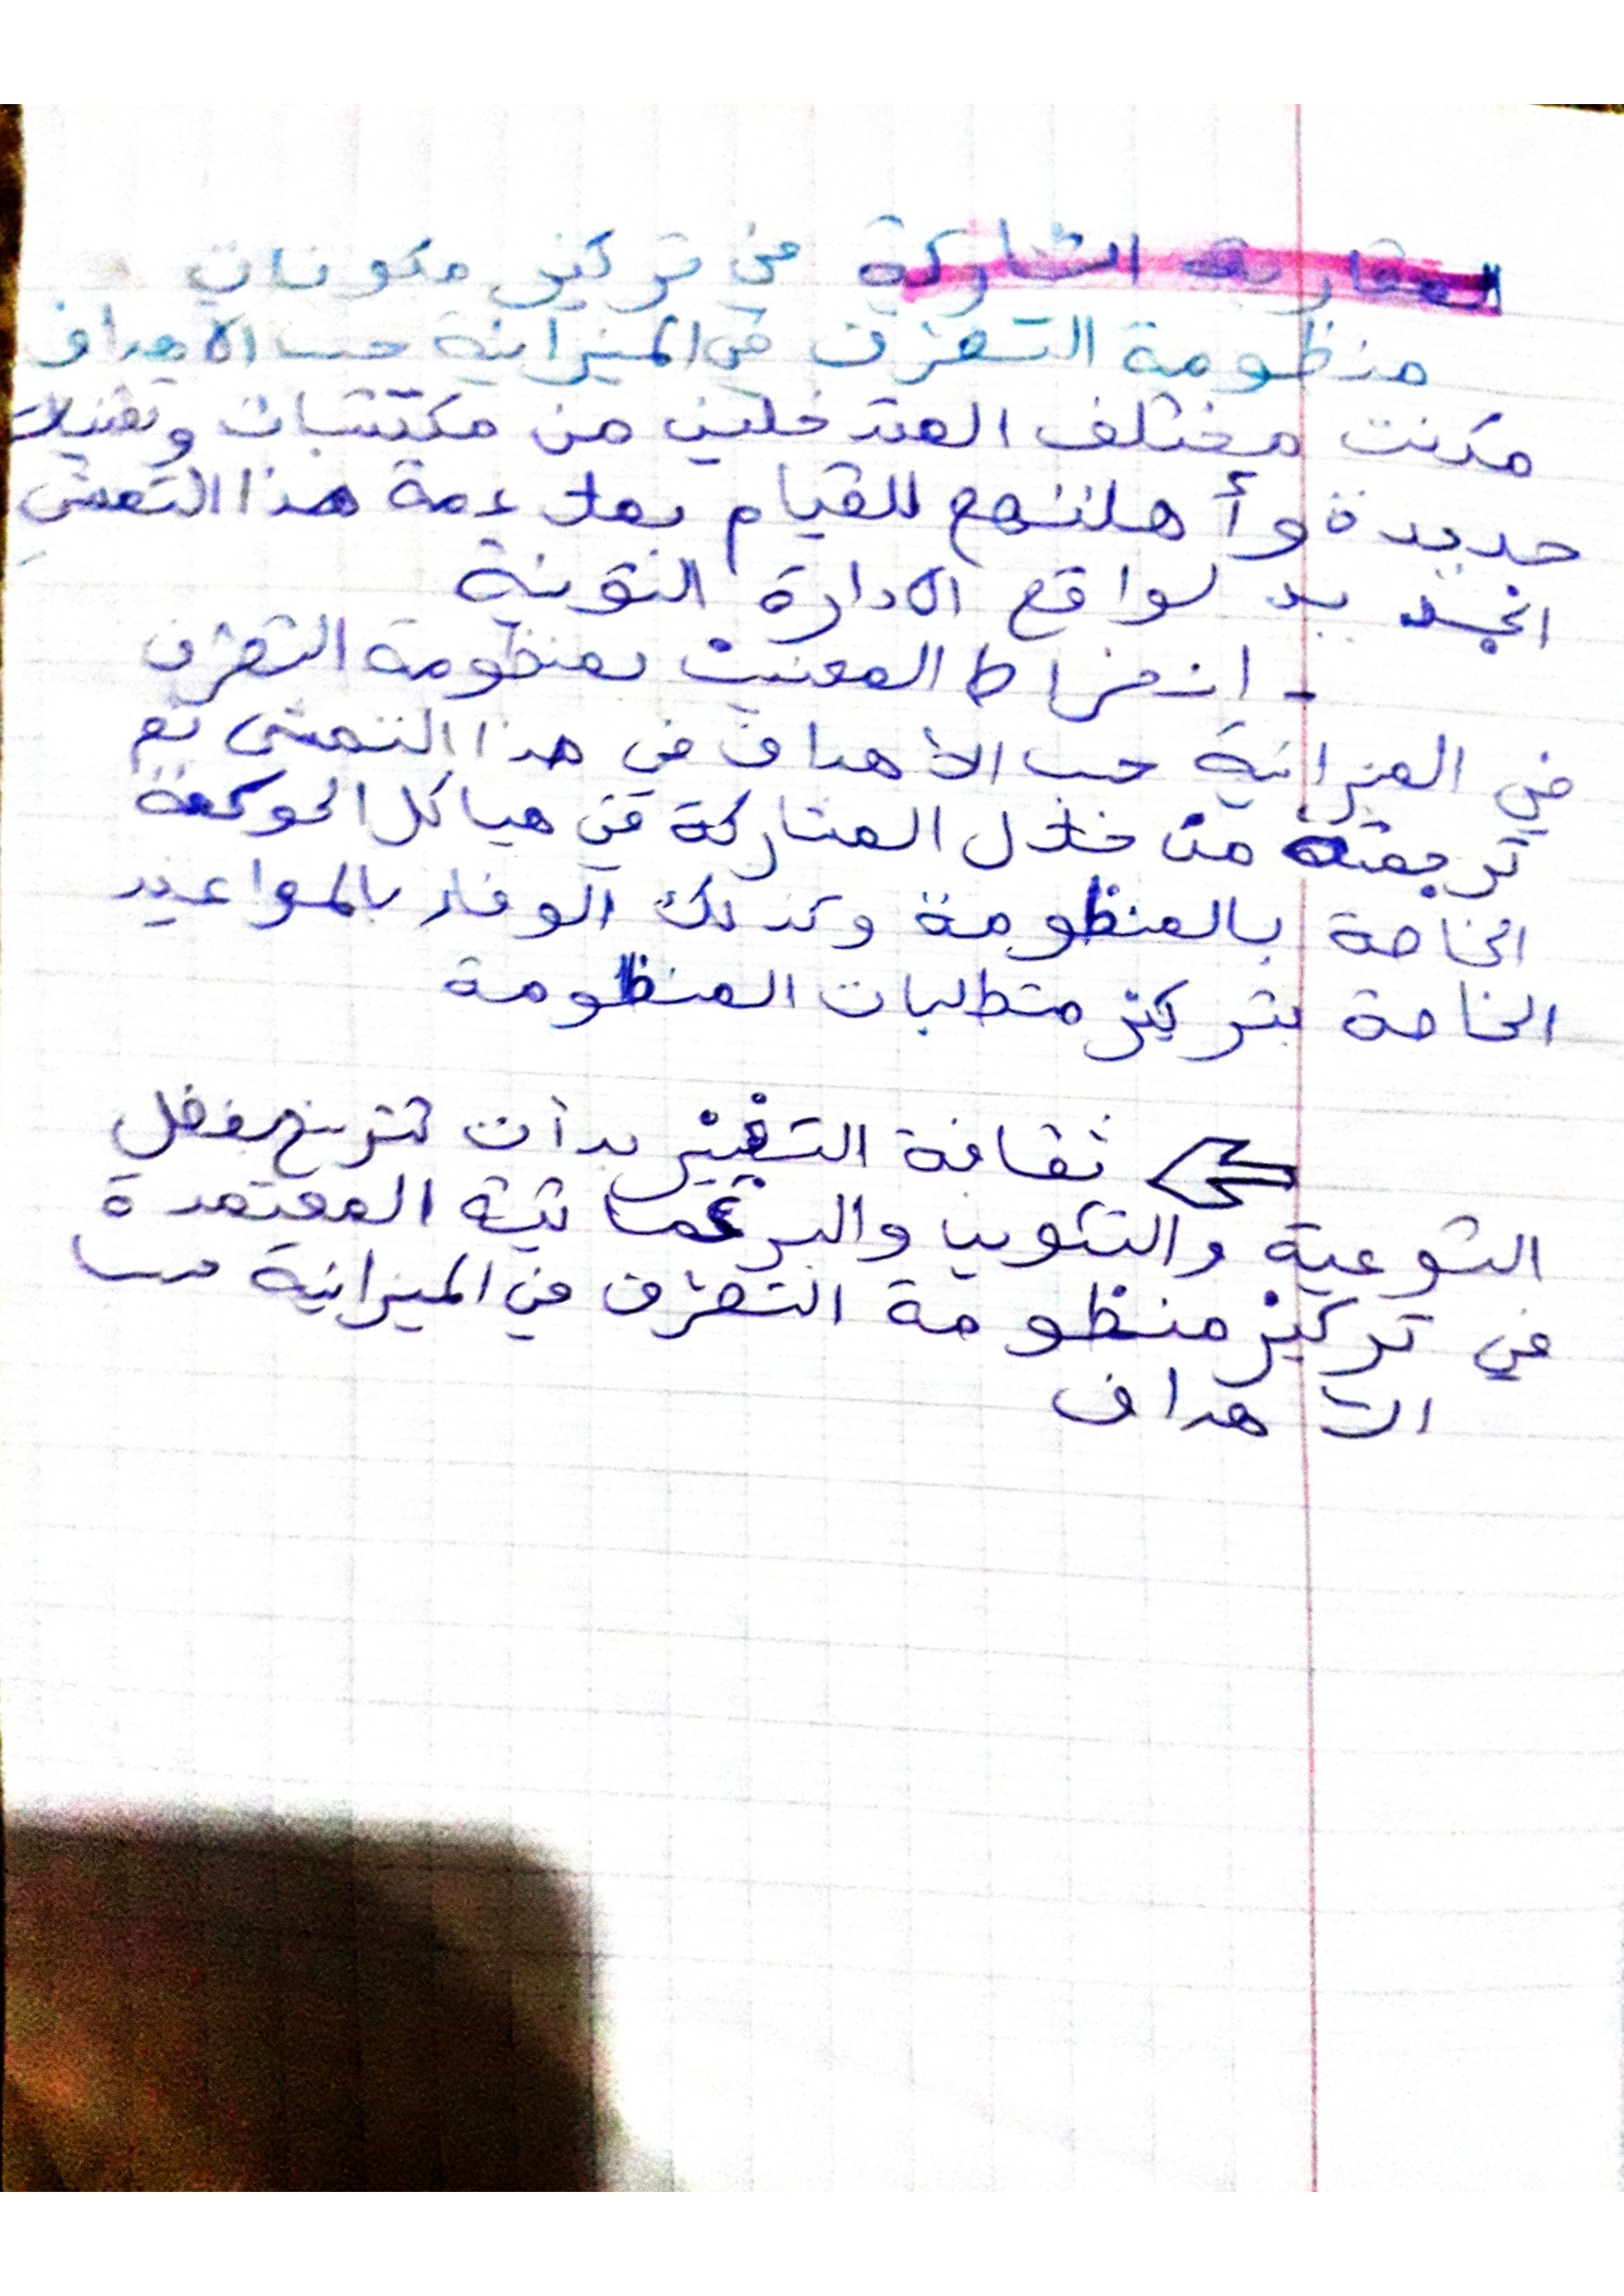 المقاربة التشاركية في تركيز مكونات
منظومة التصرف في الميزانية حسب الأهداف
مكنت مختلف المتدخلين من مكتسبات وتقنيات
جديدة وأهلتهم للقيام بملاءمة هذا التمشي
الجديد لواقع الادارة التونسية
- انخراط المعنيين بمنظومة التصرف
في الميزانية حسب الأهداف في هذا التمشي تم
ترجمته من خلال المشاركة في هياكل الحوكمة
الخاصة بالمنظومة وكذلك الوفاء بالمواعيد
الخاصة بتركيز متطلبات المنظومة
ثقافة التغيير بدأت تترسخ بفضل
التوعية والتكوين والبرغماتية المعتمدة
في تركيز منظومة التصرف في الميزانية حسب
الأهداف